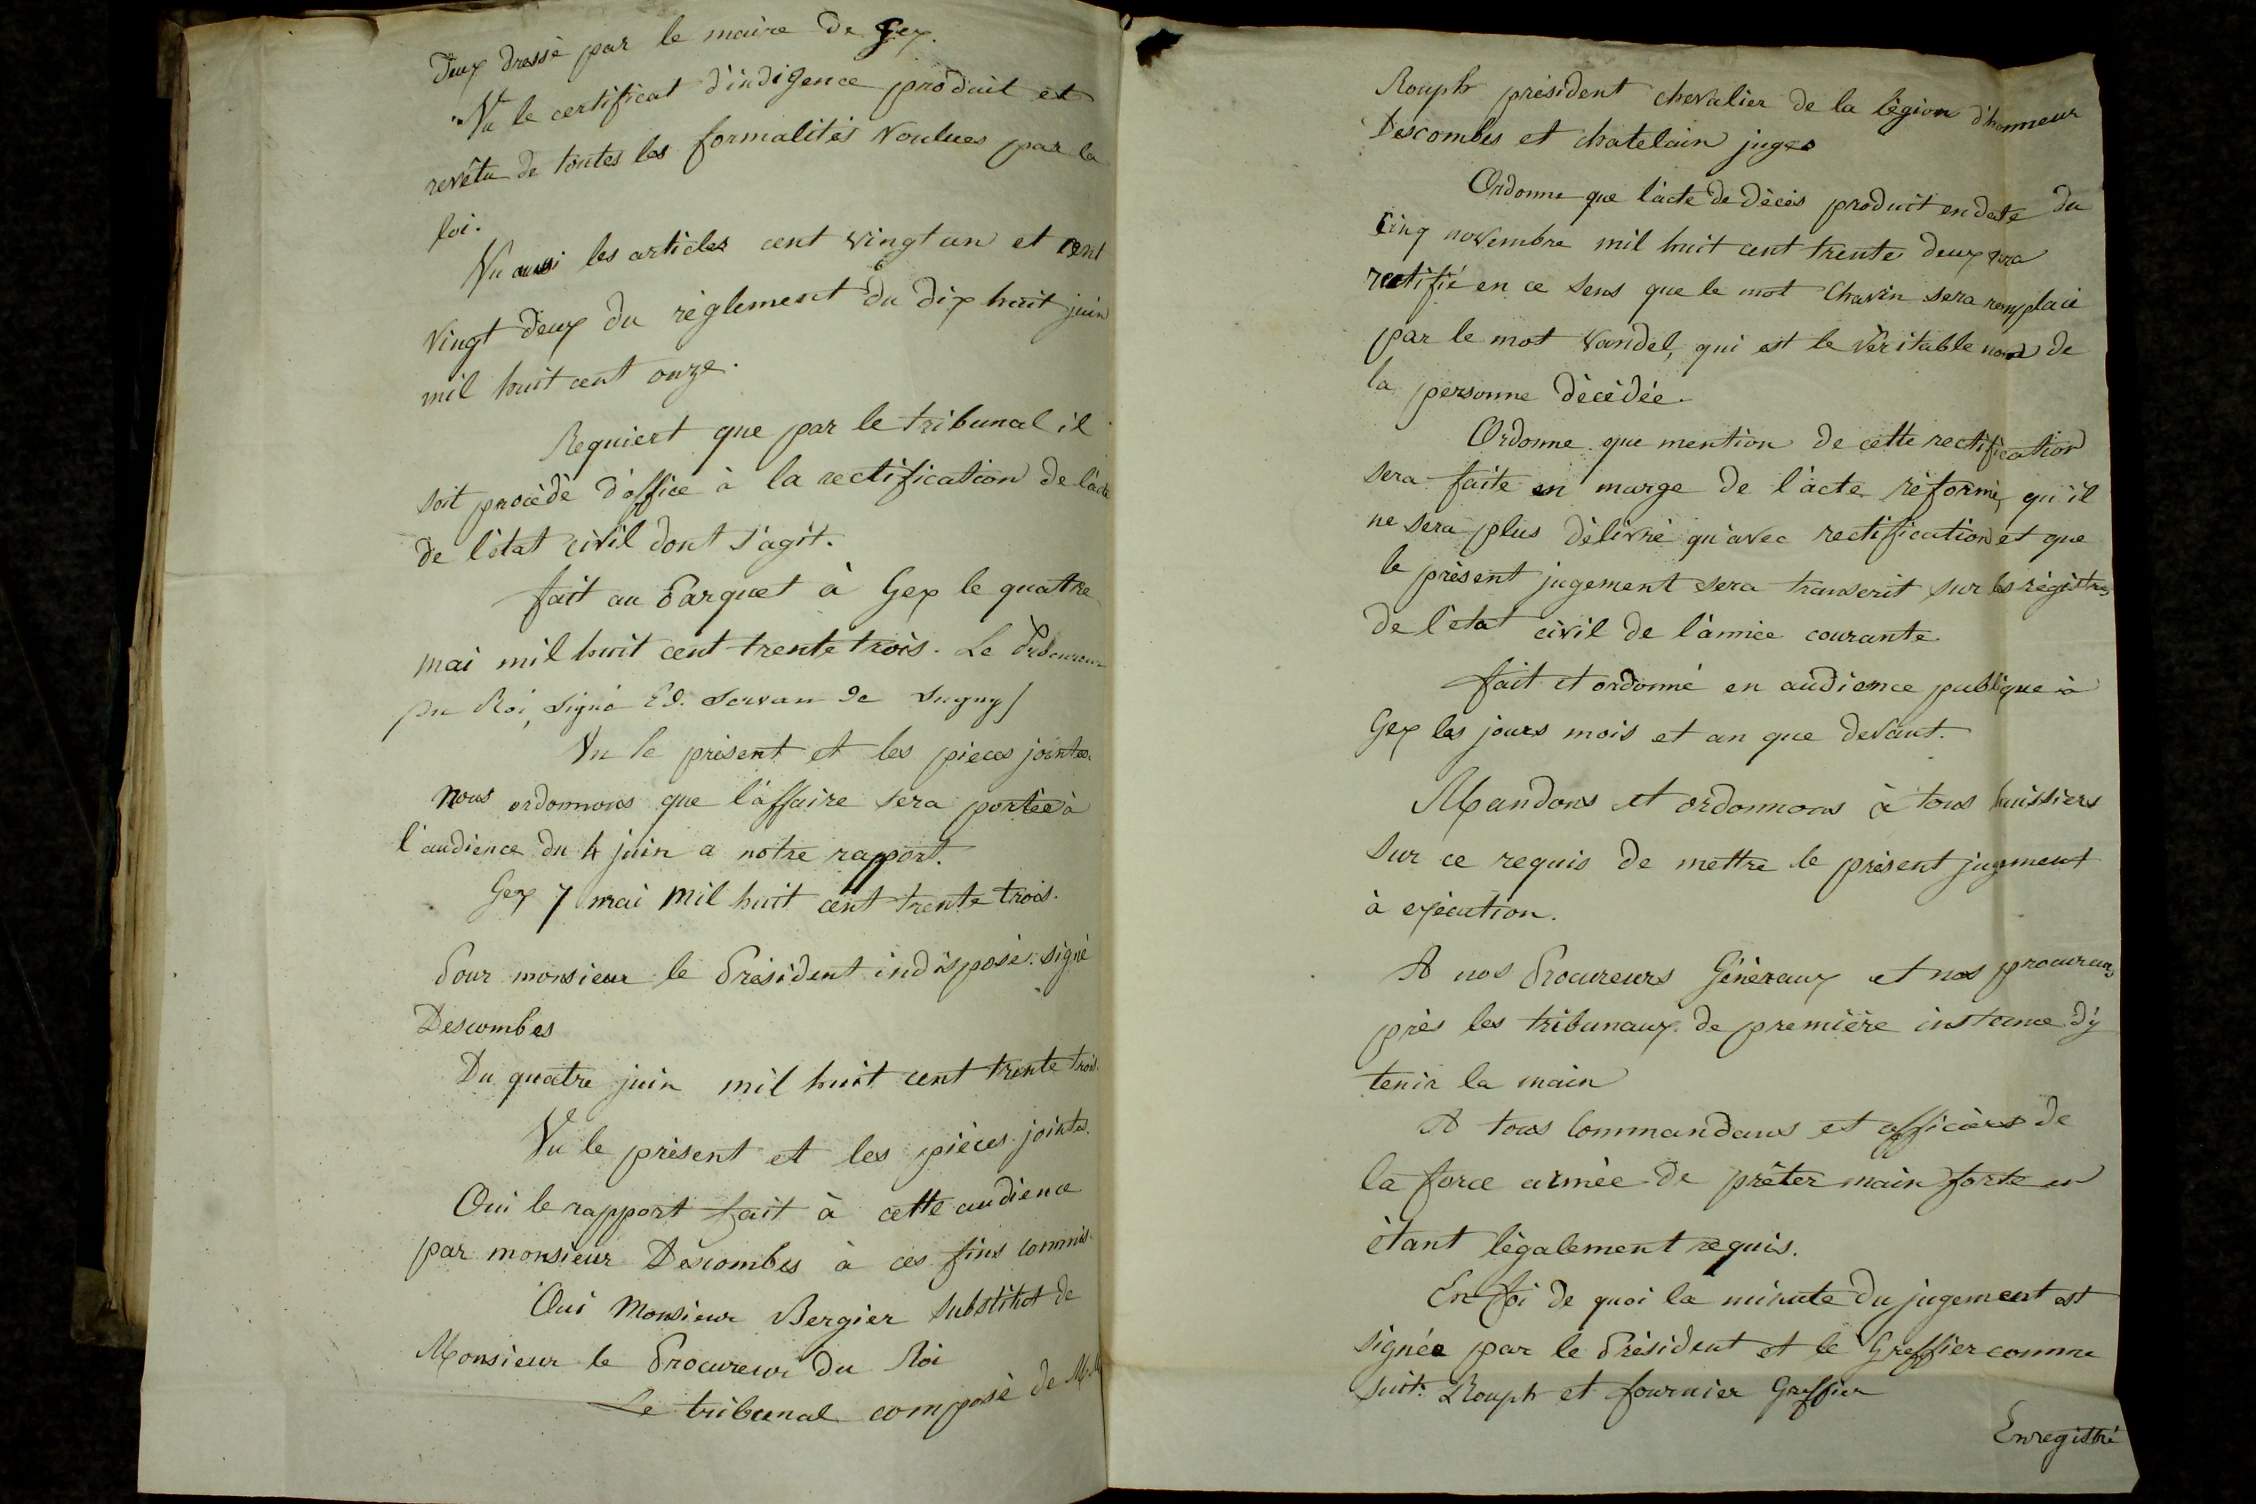 Deux dressé par le maire de Gex.
Vu le certificat d'indigence produit et
revêtu de toutes les formalités voulues par la
loi.
Vu aussi les articles cent vingt un et cent
vingt deux du règlement du dix huit juin
mil huit cent onze.
Requiert que par le tribunal il
soit procédé d'office à la rectification de l'acte
de l'état civil dont s'agit.
fait au Parquet à Gex le quatre
mai mil huit cent trente trois. Le Procureur
du Roi, signé Ed. Servan de Sugny/
Vu le présent et les pièces jointes.
Nous ordonnons que l'affaire sera portée à
l'audience du 4 juin a notre rapport.
Gex 7 mai mil huit cent trente trois.
Pour monsieur le Président indisposé. signé
Descombes
Du quatre juin mil huit cent trente trois.
Vu le présent et les pièces jointes.
Oui le rapport fait à cette audience
par monsieur Descombes à ces fins commis.
Oui Monsieur Bergier substitut de
Monsieur le Procureur du Roi
Le tribunal composé de M.M
Rouph président chevalier de la légion d'honneur
Descombes et chatelain juges
Ordonne que l'acte de décès produit en date du
cinq novembre mil huit cent trente deux sera
rectifié en ce sens que le mot Chavin sera remplacé
par le mot Vandel, qui est le véritable nom de
la personne décédée.
Ordonne que mention de cette rectification
sera faite en marge de l'acte réformé, qu'il
ne sera plus délivré qu'avec rectification et que
le présent jugement sera transcrit sur les régistres
de l'état civil de l'année courante
fait et ordonné en audience publique à
Gex les jours mois et an que devant.
Mandons et ordonnons à tous huissiers
sur ce requis de mettre le présent jugement
à exécution.
A nos Procureurs Généraux et nos procureurs
près les tribunaux de première instance d'y
tenir la main
A tous Commandans et officiers de
la force armée de prêter main forte en
étant légalement requis.
En foi de quoi la minute du jugement est
signée par le Président et le Greffier comme
suit: Rouph et fournier Greffier
Enregistré